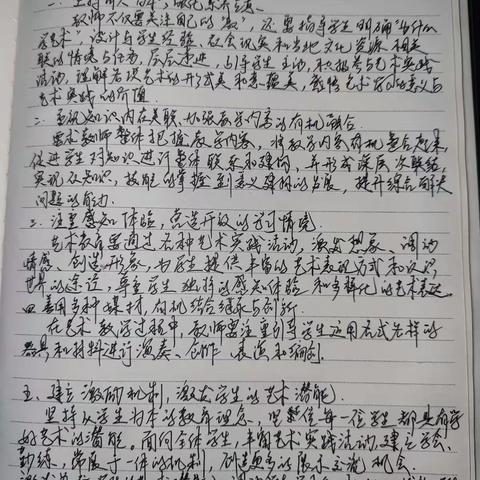 一、坚持育人为本,强化素养立意
教师不仅要关注自己的“教”,还要指导学生明确“为什么
学艺术”,设计与学生经验、社会现实和当地文化资源相关
联的情境与任务,层层递进,引导学生主动、积极参与艺术实践
活动,理解各项艺术的形式美和意蕴美,懂得艺术学习的意义与
艺术实践的价值。
二、重视知识内在关联,加强教学内容的有机整合
要求教师整体把握教学内容,将教学内容有机整合起来,
促进学生对知识进行整体联系和建构,并形成深层次联结,
实现从知识、技能的掌握到意义建构的发展,提升综合解决
问题的能力。
三、注重感知体验,营造开放的学习情境
艺术教育要通过各种艺术实践活动,激发想象、调动
情感、创造形象,为学生提供丰富的艺术表现方式和认识
世界的途径,尊重学生独特的感知体验和多样化的艺术表达。
四、善用多种媒材,有机结合继承与创新
在艺术教学过程中,教师要注重引导学生运用各式各样的
器具和材料进行演奏、创作、表演和编创。
五、建立激励机制,激发学生的艺术潜能
坚持以学生为本的教育理念,坚信每一位学生都具有学
好艺术的潜能。面向全体学生,丰富艺术实践活动,建立学会、
勤练、常展于一体的机制,创造更多的展示交流机会。